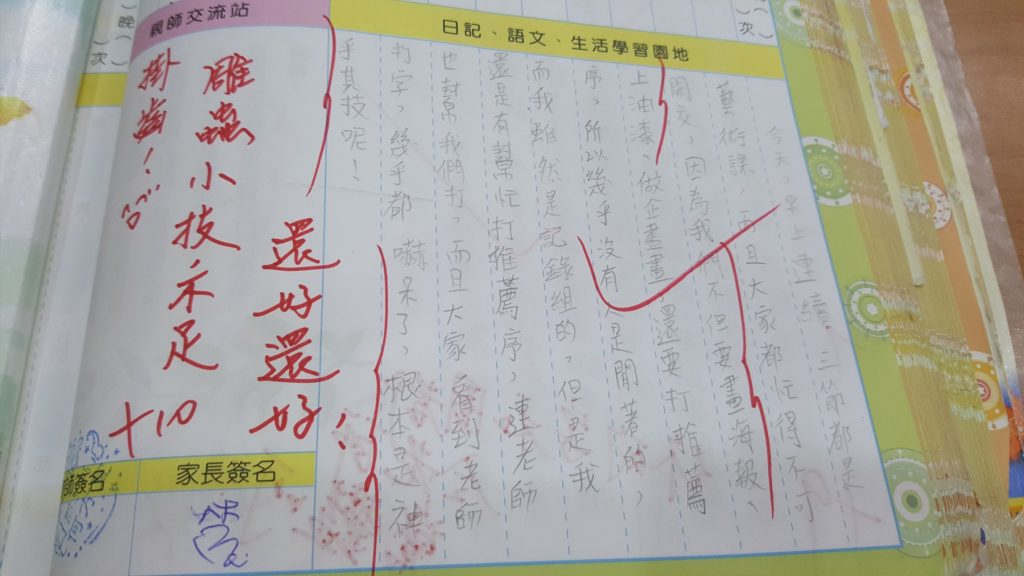 日記、語文、生活學習園地
今天,早上連續三節都是
藝術課,而且大家都忙得不可
開交,因為我們不但要畫海報、
上油漆、做企畫書,還要打推薦
序,所以幾乎沒有人是閒著的,
而我雖然是記錄組的,但是我
還是有幫忙打推薦序,連老師
也幫我們打,而且大家看到老師
打字,幾乎都嚇呆了,根本是神
乎其技呢!
親師交流站
還好還好!
雕蟲小技不足
掛齒!
+10
家長簽名
師簽名